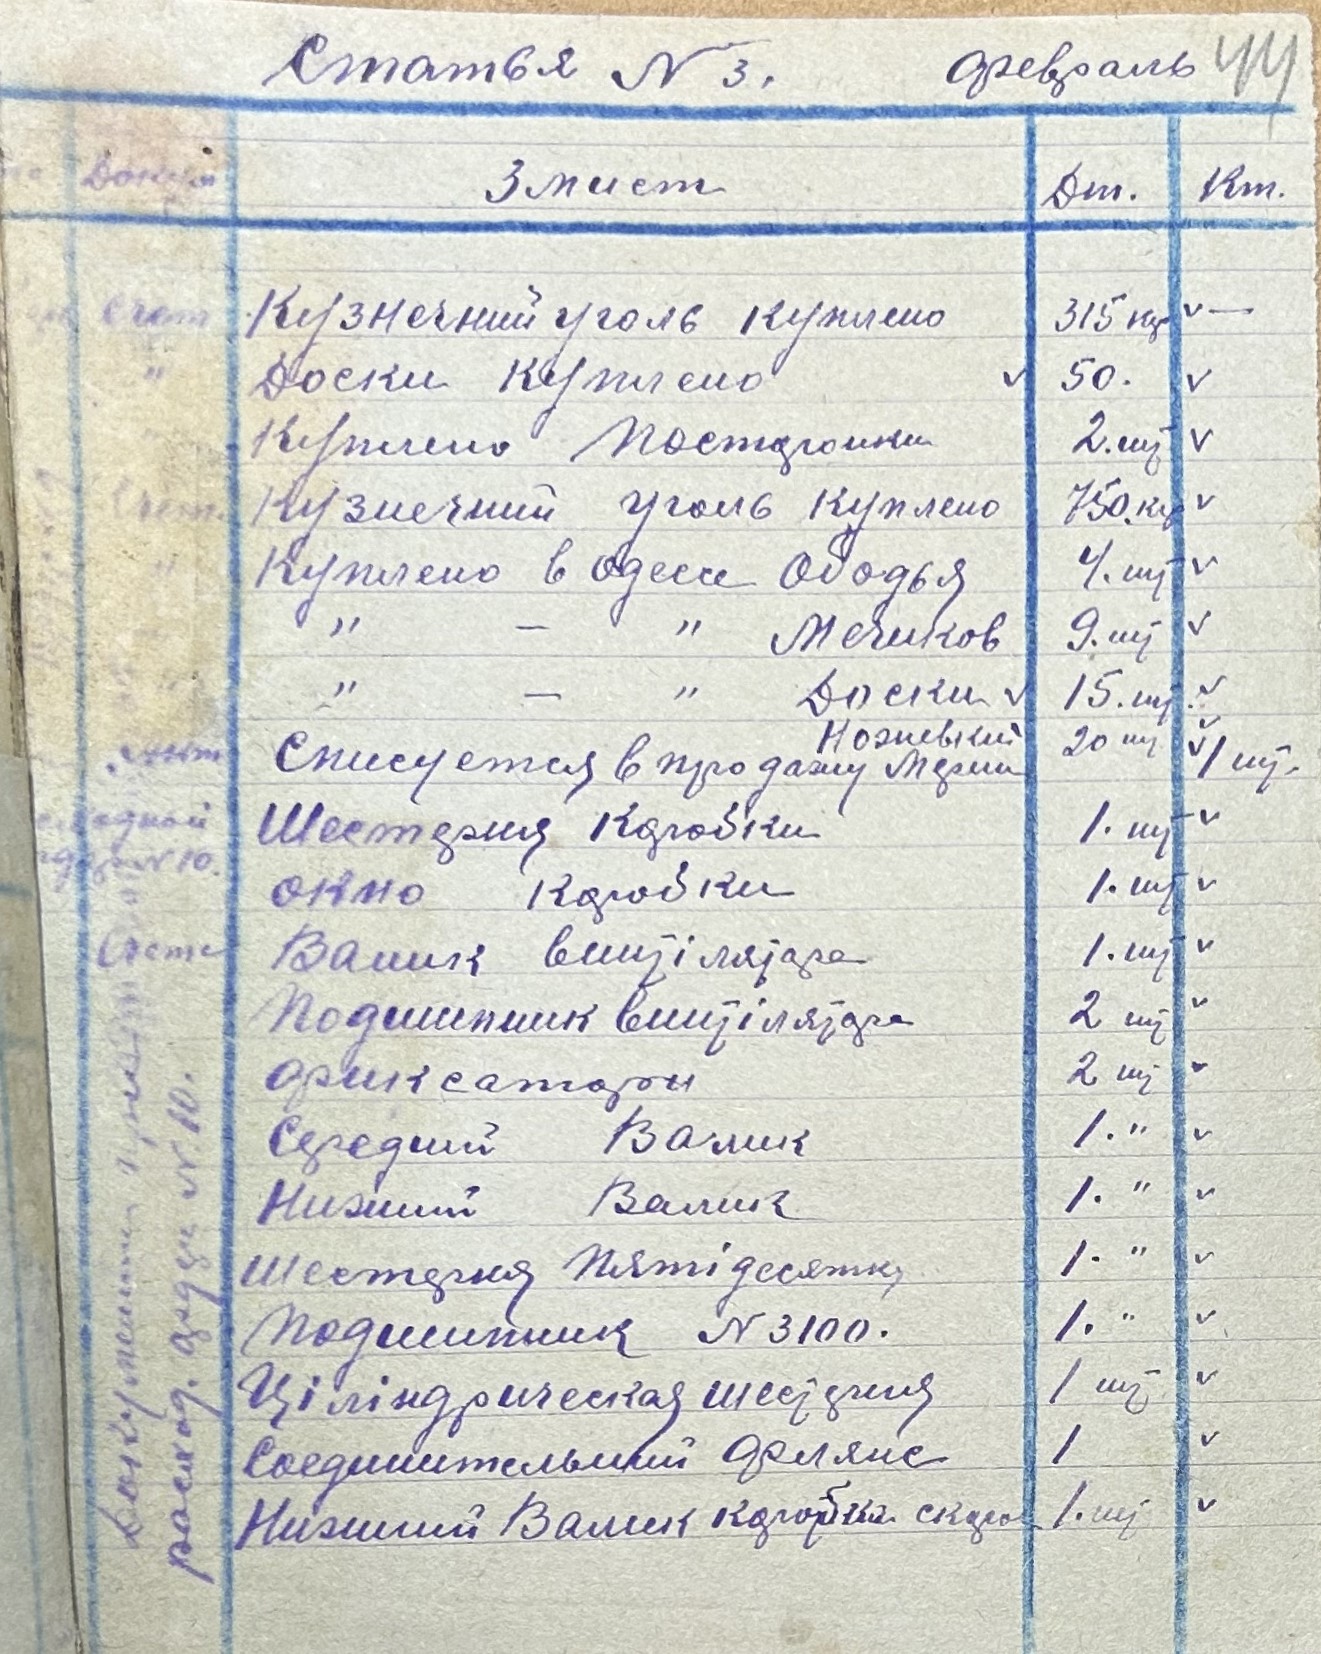 Статья N 3. февраль 44
Докум Змист Дт. Кт.
Счет Кузнечний уголь куплено 315 кг ✓ —
" Доски Куплено ✓ 50. ✓
Куплено Постромки 2. шт ✓
Счет. Кузнечний уголь Куплено 750. кг ✓
" Куплено в Одеси Ободья 4. шт ✓
" — " Мечиков 9. шт ✓
" " — " Доски ✓ 15. шт. ✓
20 шт ✓
Акт Списуется в продажу Мерин ✓ 1 шт.
Шестерня Коробки 1. шт ✓
N 10.
окно Коробки 1. шт ✓
Счет Валик вентілятора 1. шт ✓
Подшипник вентілятора 2 шт ✓
фиксатори 2 шт ✓
Середний Валик 1. " ✓
Нижний Валик 1. " ✓
Шестерня Пятідесятку 1. " ✓
Подшипник N 3100. 1. " ✓
Ціліндрическая шестерня 1 шт ✓
Соединительний Флянс 1 ✓
Нижний Валик коробки скоро 1. шт ✓
Документи
расход. N 10.